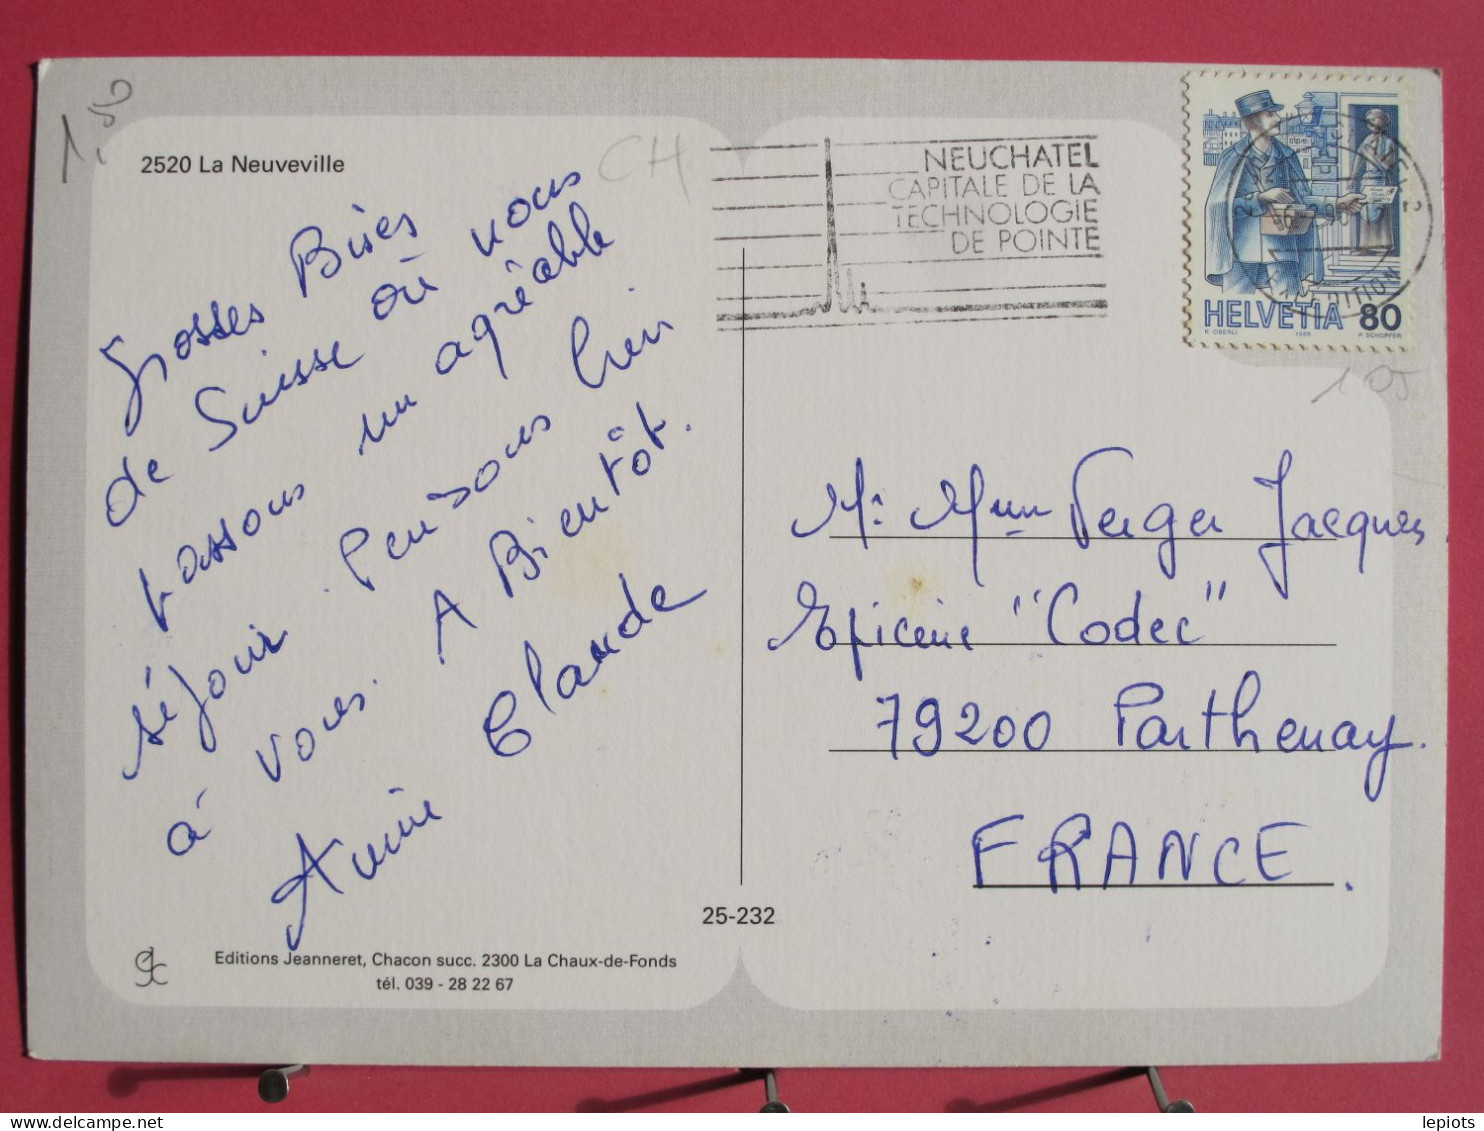 1,50
2520 La Neuveville
CH
Grosses Bises
de Suisse où nous
passons un agréable
séjour. Pensons bien
à vous. A Bientôt.
Annie Claude
NEUCHATEL
CAPITALE DE LA
TECHNOLOGIE
DE POINTE
EXPEDITION
HELVETIA 80
K. OBERLI 1986 P. SCHOPFER
105
Mr Mme Verger Jacques
Epicerie "Codec"
79200 Parthenay.
FRANCE.
25-232
Editions Jeanneret, Chacon succ. 2300 La Chaux-de-Fonds
tél. 039 - 28 22 67
delcampe.net
lepiots